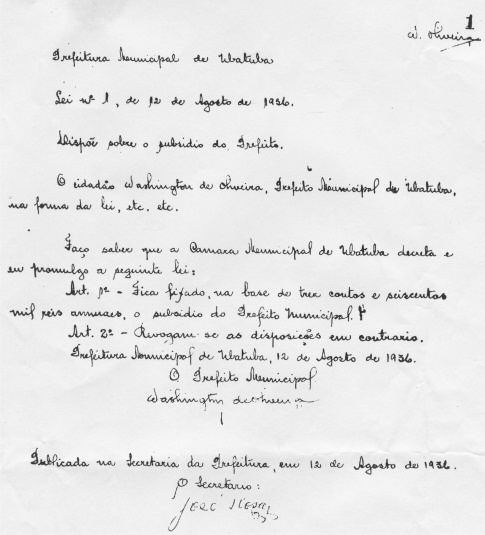 1
W. Oliveira
Prefeitura Municipal de Ubatuba
Lei nº 1, de 12 de Agosto de 1936.
Dispõe sobre o subsidio do Prefeito.
O cidadão Washington de Oliveira, Prefeito Municipal de Ubatuba,
na forma da lei, etc. etc.
Faço saber que a Camara Municipal de Ubatuba decreta e
eu promulgo a seguinte lei:
Art. 1º - Fica fixado, na base de tres contos e seiscentos
mil reis annuaes, o subsidio do Prefeito Municipal.
Art. 2º - Revogam-se as disposições em contrario.
Prefeitura Municipal de Ubatuba, 12 de Agosto de 1936.
O Prefeito Municipal
Washington de Oliveira
Publicada na Secretaria da Prefeitura, em 12 de Agosto de 1936.
O Secretario: